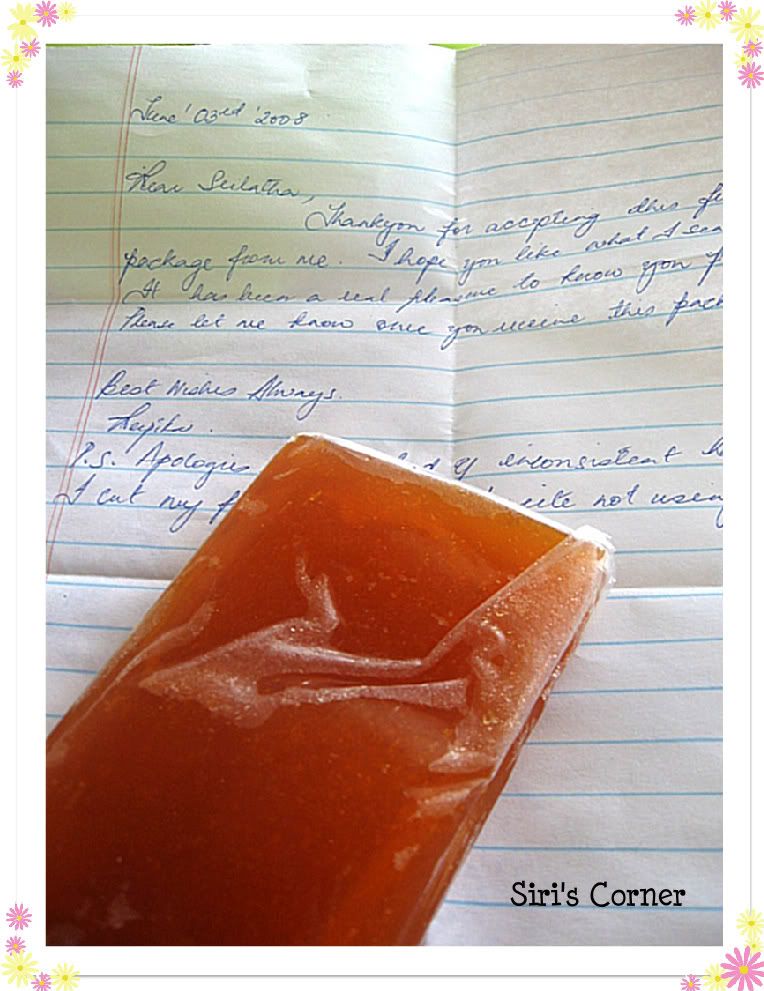 June '03rd '2008
Dear Srilatha,
Thankyou for accepting this
package from me. I hope you like what I
It has been a real pleasure to know you
Please let me know once you receive this
Best Wishes Always.
P.S. inconsistent
I cut my not
Siri's Corner